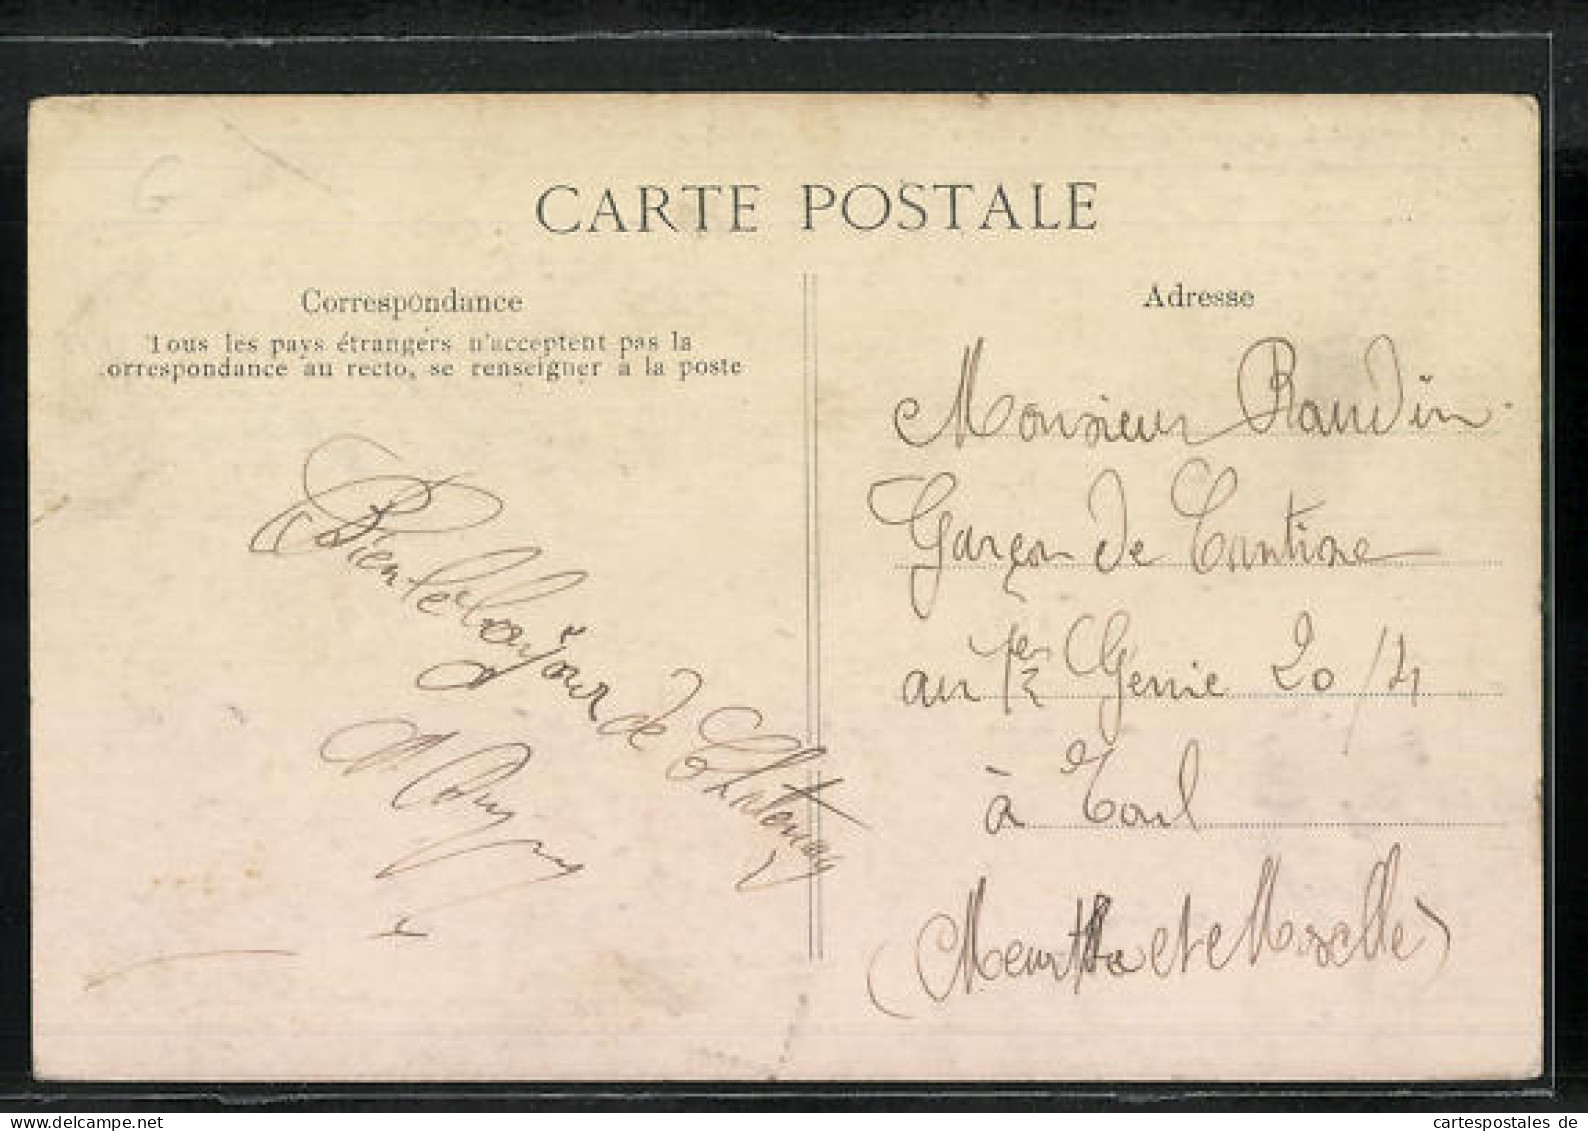 CARTE POSTALE
Correspondance
Tous les pays étrangers n'acceptent pas la
correspondance au recto, se renseigner à la poste
Bien le bonjour de Chatenay
Adresse
Monsieur Raudin
Garçon de Cantine
au 1er Génie 20/4
à Toul
(Meurthe et Moselle)
cartespostales de